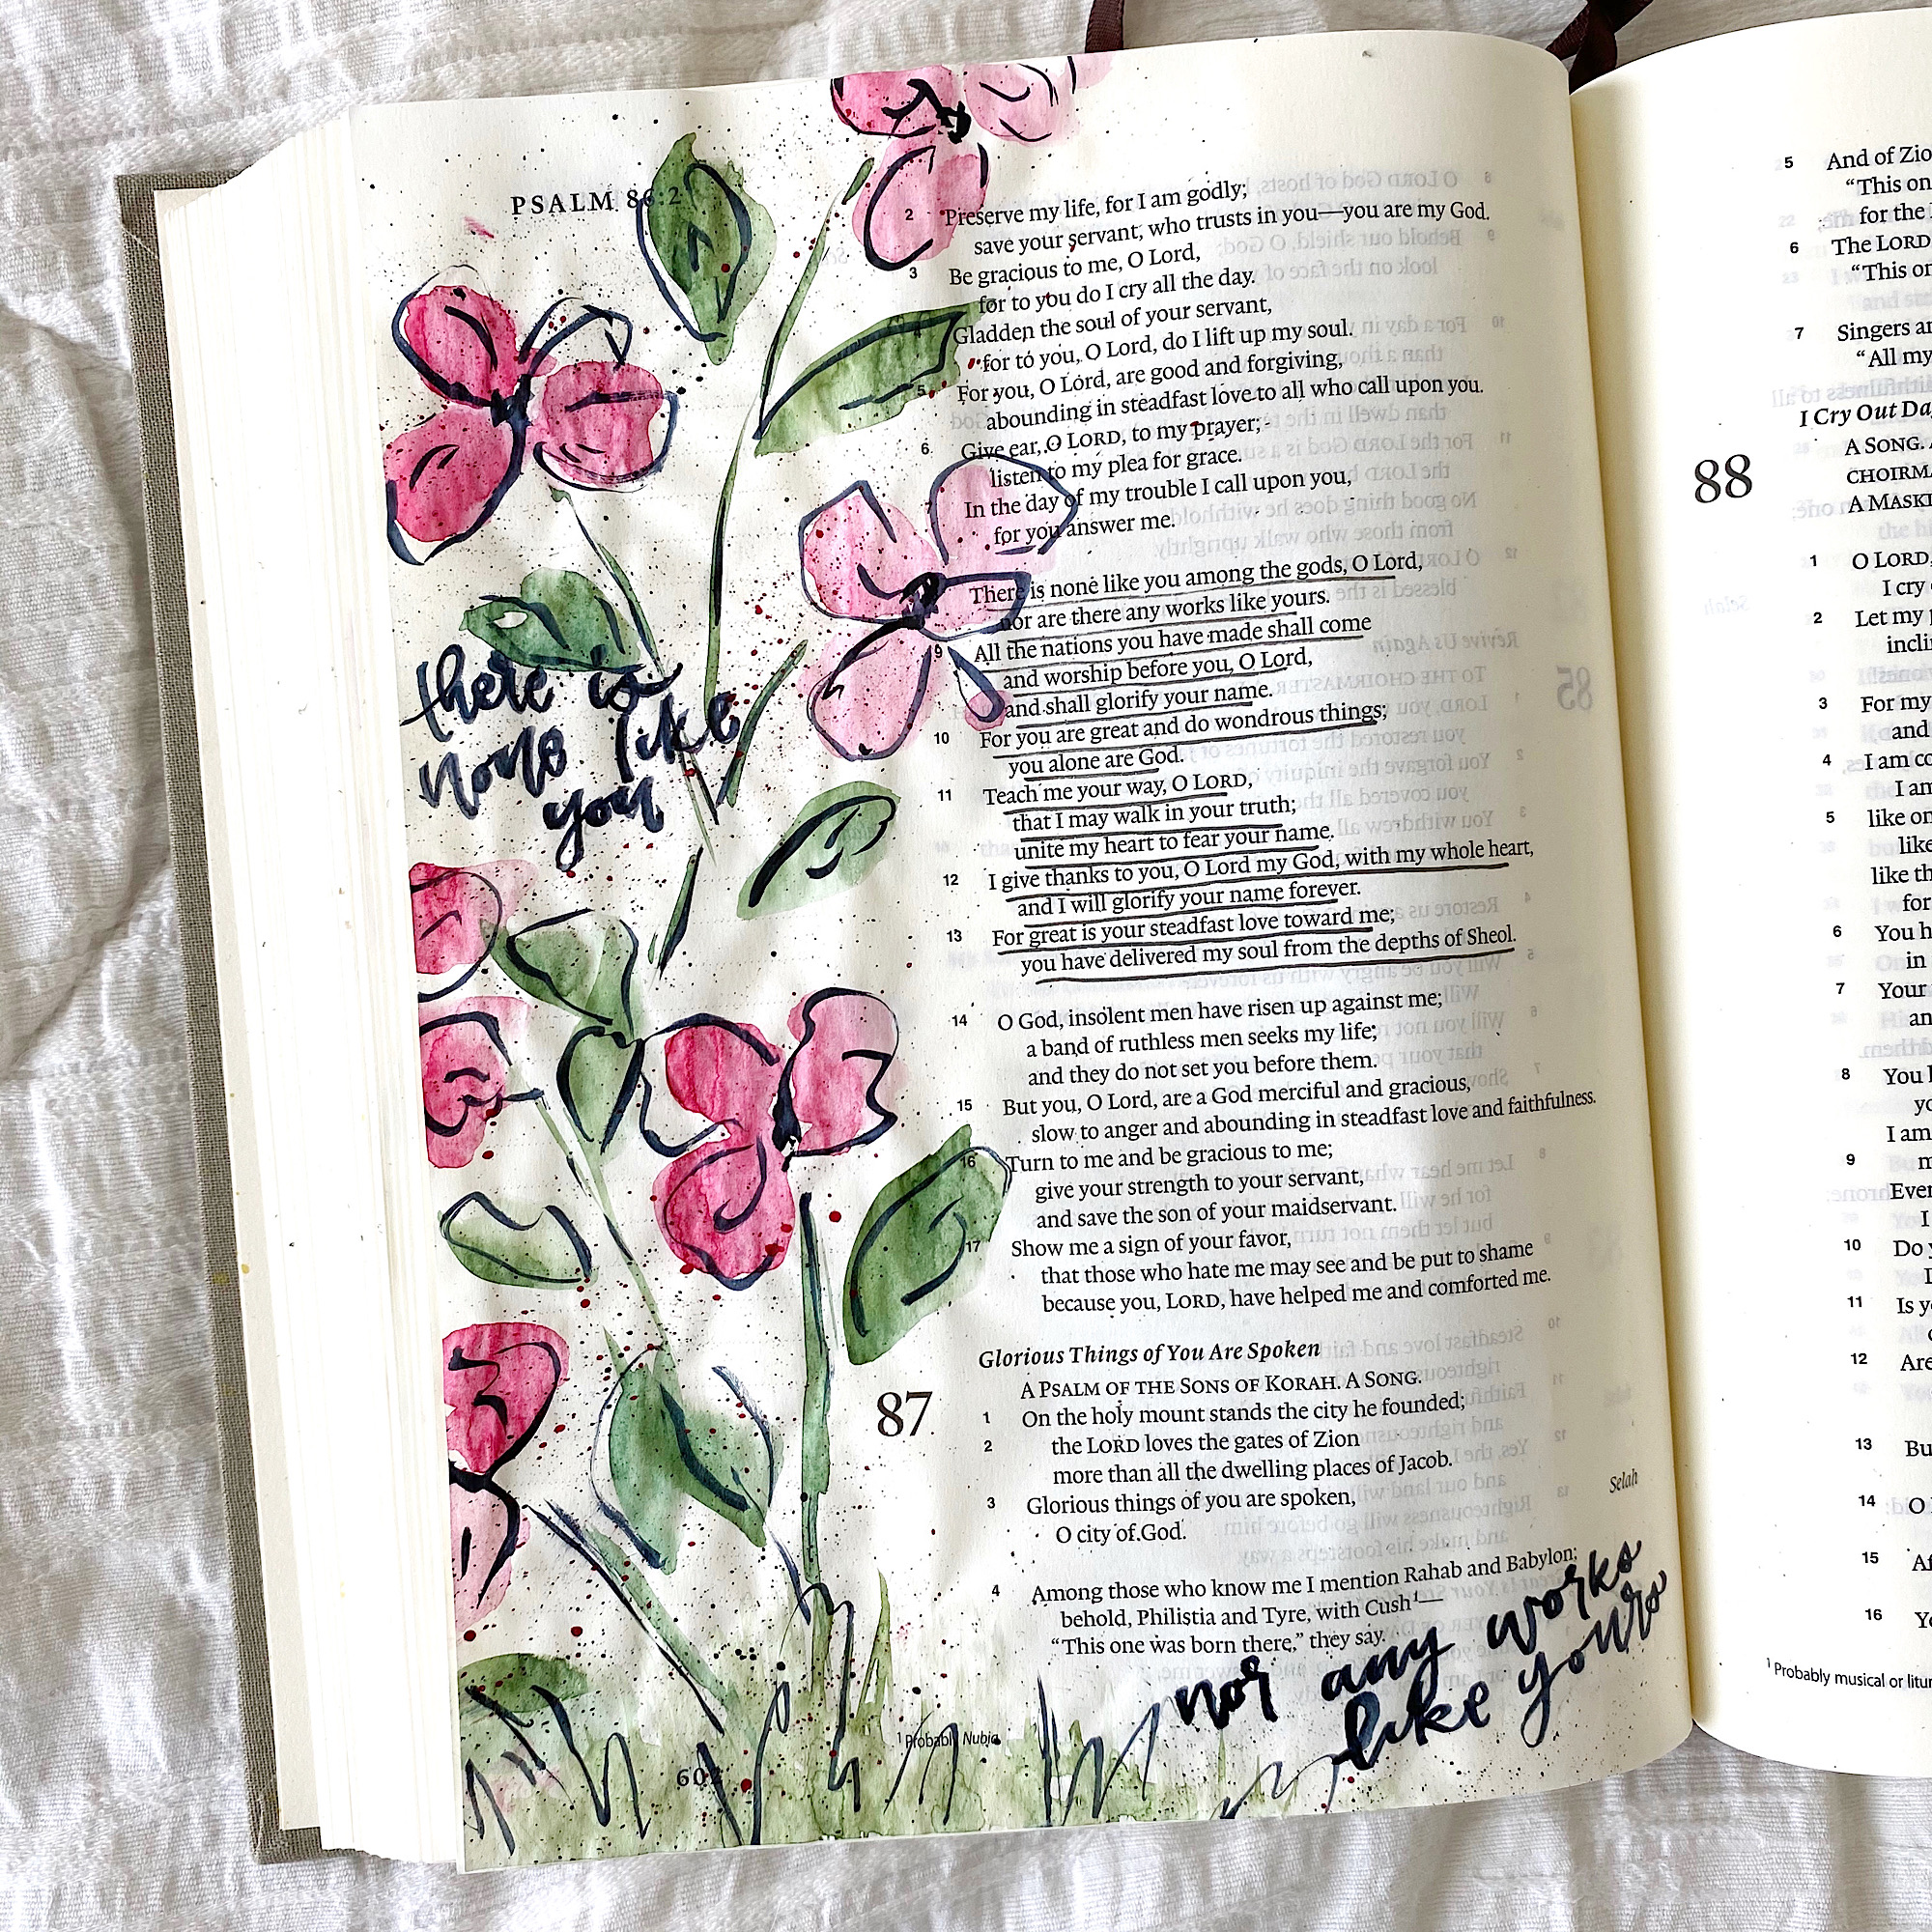 PSALM 86:2
2 Preserve my life, for I am godly;
save your servant, who trusts in you—you are my God.
3 Be gracious to me, O Lord,
for to you do I cry all the day.
Gladden the soul of your servant,
for to you, O Lord, do I lift up my soul.
5 For you, O Lord, are good and forgiving,
abounding in steadfast love to all who call upon you.
6 Give ear, O LORD, to my prayer;
listen to my plea for grace.
7 In the day of my trouble I call upon you,
for you answer me.
There is none like you among the gods, O Lord,
nor are there any works like yours.
9 All the nations you have made shall come
and worship before you, O Lord,
and shall glorify your name.
10 For you are great and do wondrous things;
you alone are God.
11 Teach me your way, O LORD,
that I may walk in your truth;
unite my heart to fear your name.
12 I give thanks to you, O Lord my God, with my whole heart,
and I will glorify your name forever.
13 For great is your steadfast love toward me;
you have delivered my soul from the depths of Sheol.
14 O God, insolent men have risen up against me;
a band of ruthless men seeks my life;
and they do not set you before them.
15 But you, O Lord, are a God merciful and gracious,
slow to anger and abounding in steadfast love and faithfulness.
16 Turn to me and be gracious to me;
give your strength to your servant,
and save the son of your maidservant.
17 Show me a sign of your favor,
that those who hate me may see and be put to shame
because you, LORD, have helped me and comforted me.
there is
none like
you
Glorious Things of You Are Spoken
87 A PSALM OF THE SONS OF KORAH. A SONG.
1 On the holy mount stands the city he founded;
2 the LORD loves the gates of Zion
more than all the dwelling places of Jacob.
3 Glorious things of you are spoken,
O city of God. Selah
4 Among those who know me I mention Rahab and Babylon;
behold, Philistia and Tyre, with Cush1—
“This one was born there,” they say.
nor any works
like yours
1 Probably Nubia
602
5 And of Zio
“This on
for the
6 The LORD
“This on
7 Singers an
“All my
I Cry Out Da
88 A SONG. A
CHOIRMA
A MASKI
1 O LORD,
I cry
2 Let my
incli
3 For my
and
4 I am co
I am
5 like on
like
like th
for
6 You h
in
7 Your
an
8 You
yo
I am
9 m
Ever
I
10 Do y
11 Is y
12 Are
13 Bu
14 O
15 Af
16 Yo
1 Probably musical or litur